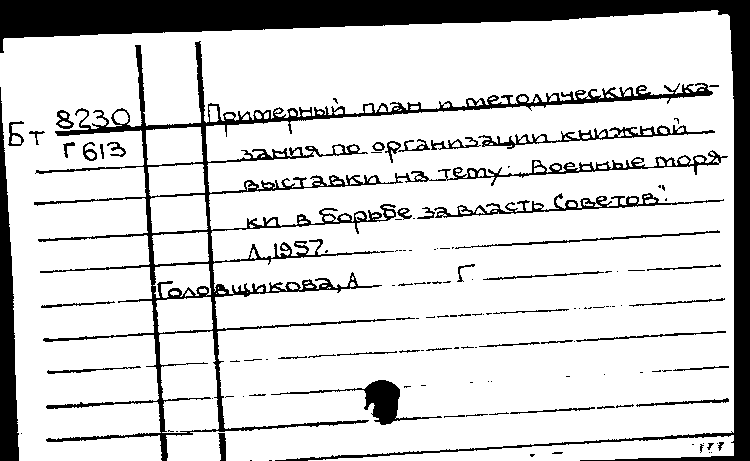 Бт 8230 Примерный план и методические ука-
Г613 зания по организации книжной
выставки на тему: „Военные моря-
ки в борьбе за власть Советов".
Л., 1957.
Головщикова, А Г